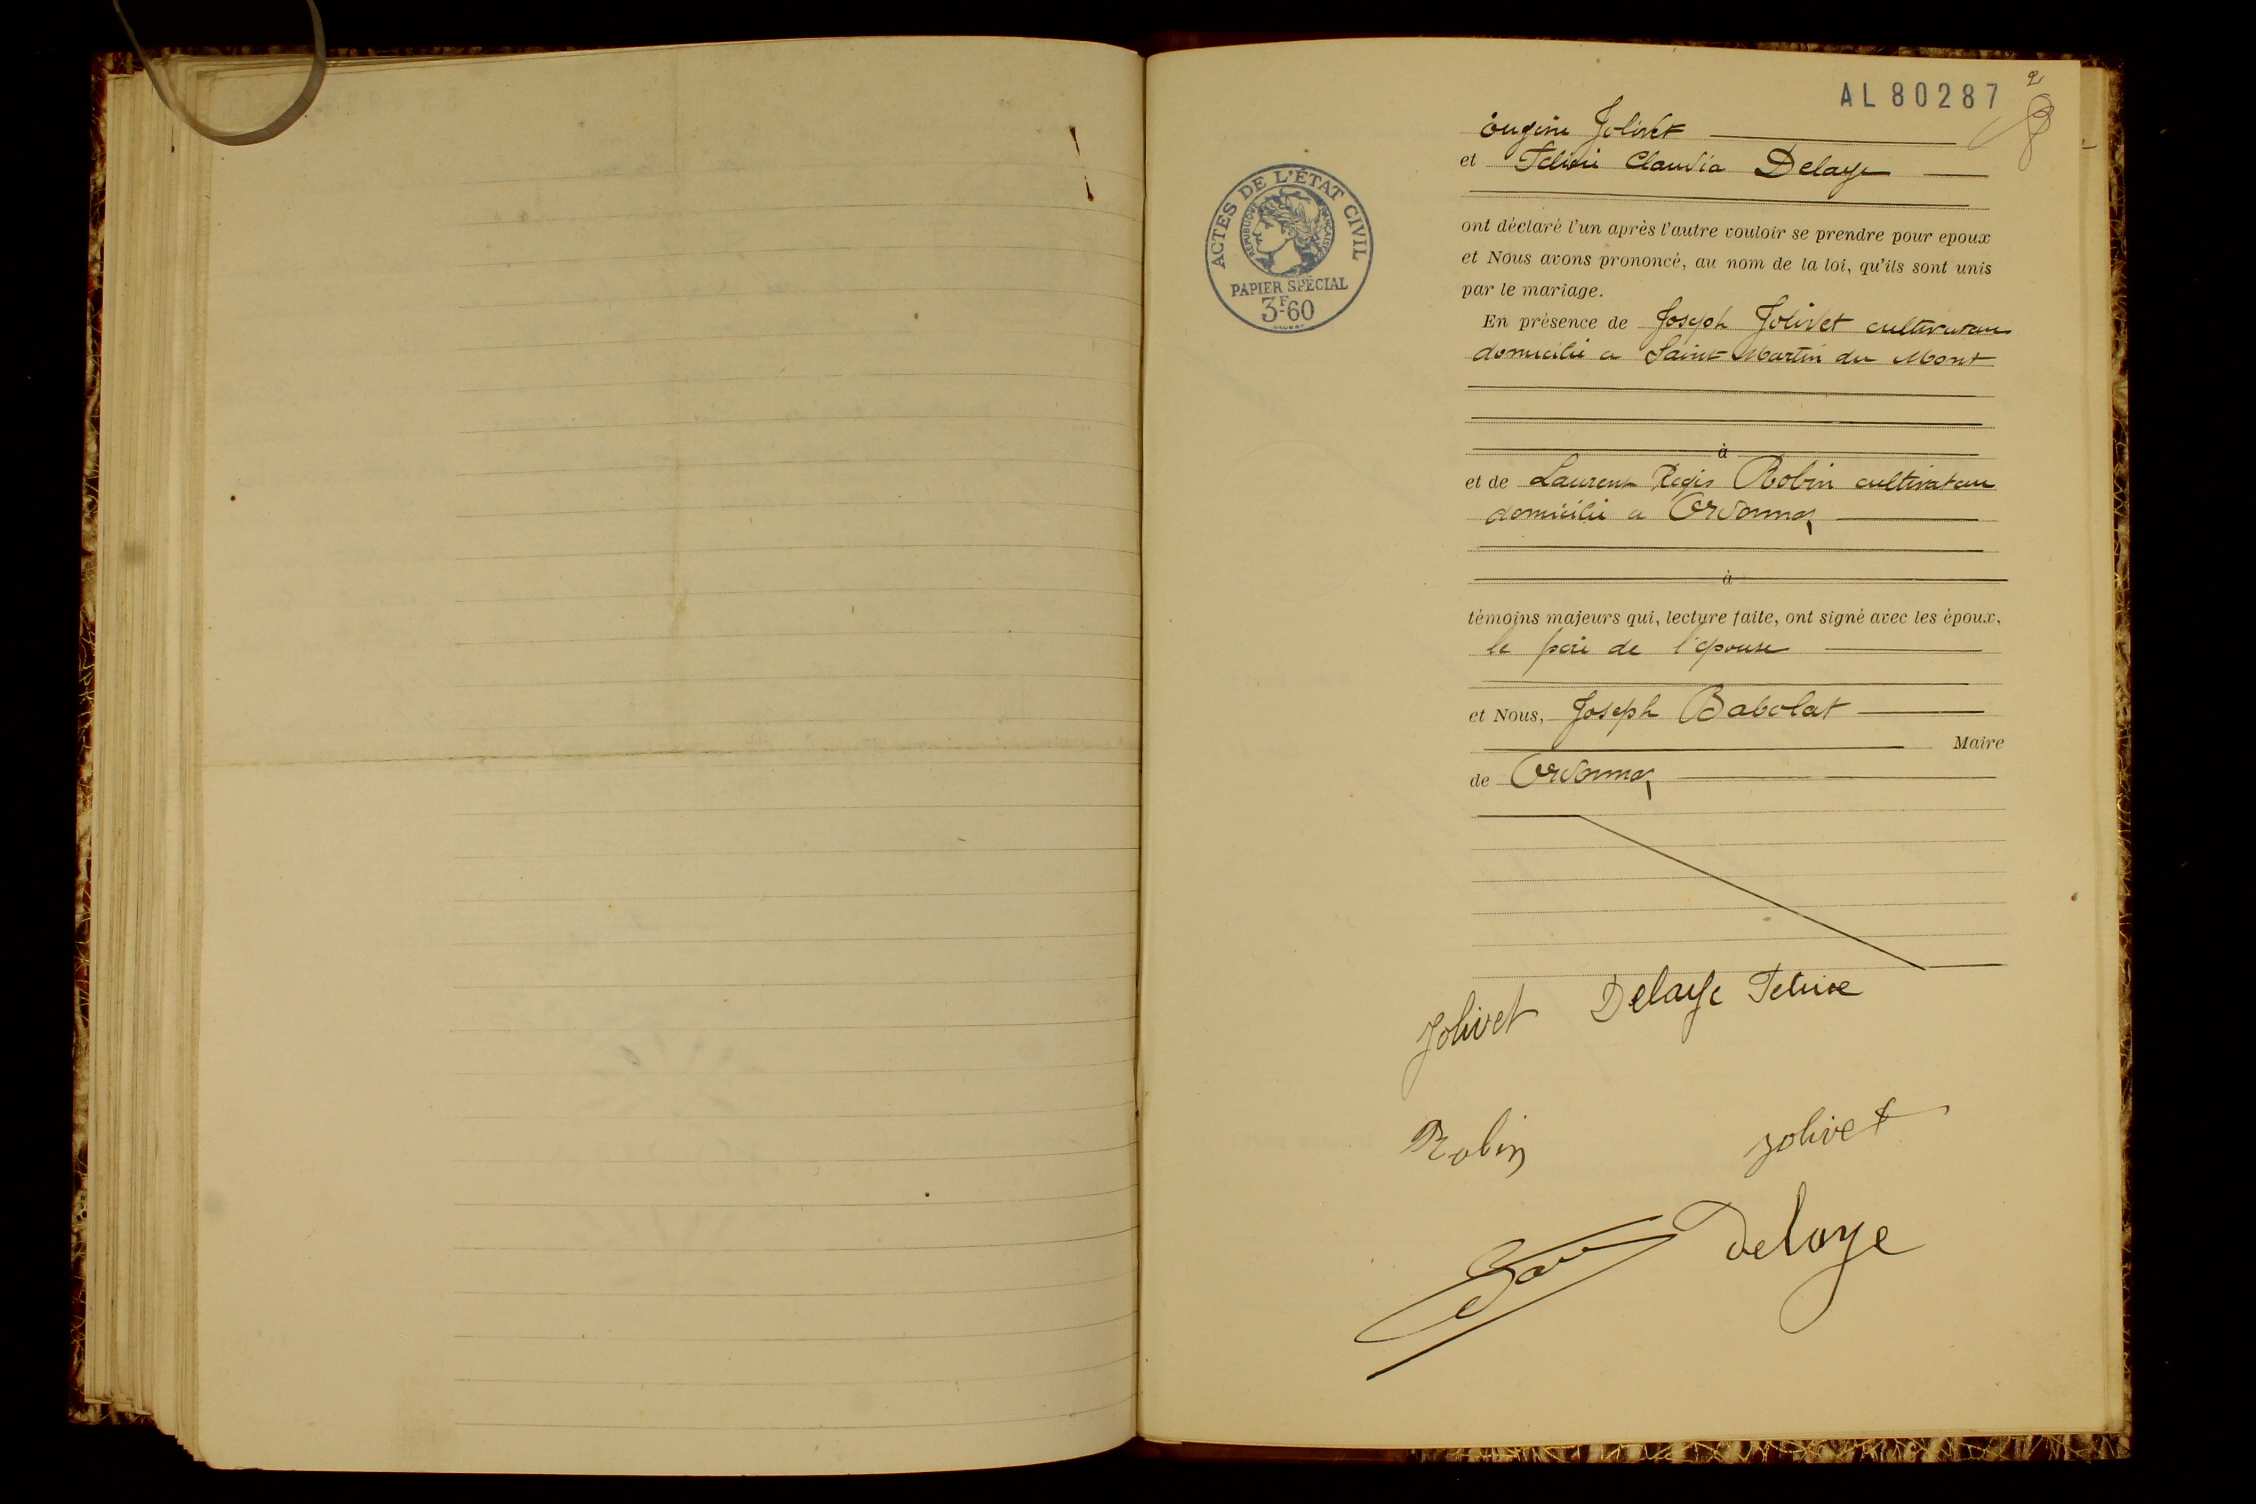 AL 80287
2
Eugène Jolivet
et Félicie Claudia Delaye
ACTES DE L'ÉTAT CIVIL
RÉPUBLIQUE FRANÇAISE
PAPIER SPÉCIAL
3F.60
ont déclaré l'un après l'autre vouloir se prendre pour epoux
et Nous avons prononcé, au nom de la loi, qu'ils sont unis
par le mariage.
En présence de Joseph Jolivet cultivateur
domicilié a Saint Martin du Mont
à
et de Laurent Régis Robin cultivateur
domicilié a Ordonnaz
à
témoins majeurs qui, lecture faite, ont signé avec les époux,
le père de l'épouse
et Nous, Joseph Babolat
Maire
de Ordonnaz
Jolivet Delaye Félicie
Robin Jolivet
Delaye